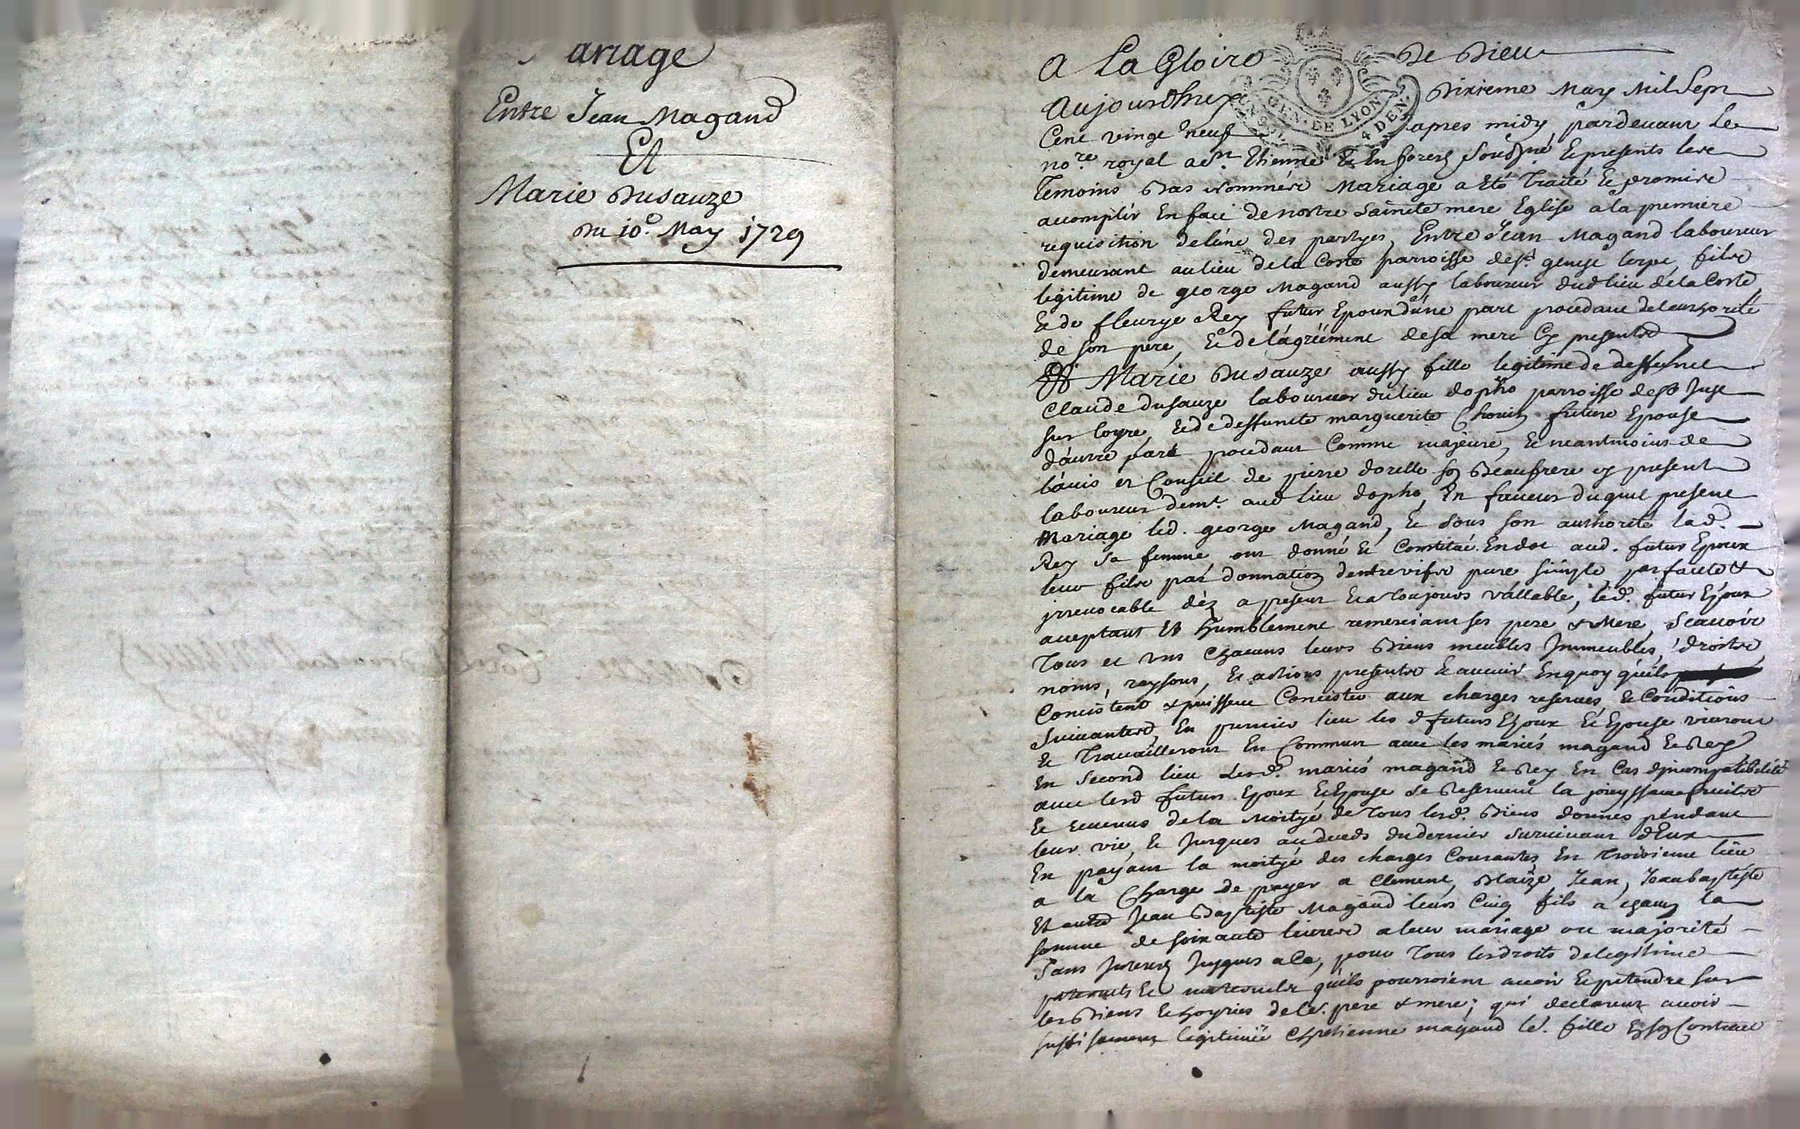 Mariage
Entre Jean Magand
Et
Marie Dusauze
Du 10e May 1729
A La Gloire de Dieu
GEN. DE LYON
4 DEN.
Aujourdhuy Dixieme May Mil Sept
Cent vingt neuf apres midy, pardevant Le
nore royal a Etienne Et En forez Soussigné Et presents les
Temoins Bas nommés Mariage a Eté Traité Et promis
acomplir En face de nostre Sainte mere Eglise a la premiere
requisition de lune des partyes, Entre Jean Magand laboureur
demeurant au lieu de la Coste parroisse de St genest lerpt, fils
legitime de george Magand aussy laboureur dud lieu de la Coste,
Et de fleurye Rey futur Epoux d'une part procedant de lauthorité
de son pere, Et de lágréement de sa mere Cy presents
Et Marie Dusauze aussy fille legitime de deffunct
Claude Dusauze laboureur du lieu dopho parroisse de St Just
sur loyre, Et de deffuncte marguerite Chouin future Epouse
d'autre part procedant Comme majeure, Et neantmoins de
lávis et Conseil de pierre dorelle son Beaufrere cy present
laboureur demt aud lieu dopho, En faveur duquel present
Mariage led. george Magand, Et sous son authorité lad.
Rey sa femme ont donné Et Constitué En dot aud. futur Epoux
leur fils par donnation d'entrevifs pure simple parfaite Et
irrevocable dez a present Et a Toujours vállable, led. futur Epoux
acceptant Et humblement remerciant ses pere & Mere, Scavoir
Tous et uns Chacuns leurs Biens meubles Immeubles, droits
noms, raysons, Et actions presents Et avenir Enquoy quils
Concistent & puissent Concister aux charges reserves, & Conditions
Suivantes, En premier lieu les d futurs Epoux Et Epouse vivront
Et Travailleront En Commun avec les mariés magand Et Rey
En Second lieu Lesd. mariés magand Et Rey En Cas dincompatibilité
avec lesd futurs Epoux Et Epouse Se Reservent la jouyssance fruits
Et revenus de la Moityé de Tous lesd. Biens donnés pendant
leur vie, Et Jusques au deceds du dernier survivant d'Eux
En payant la moityé des charges Courantes En Troisieme lieu
a la Charge de payer a Clement, Blaize Jean, Jean baptiste
Et autre Jean Baptiste Magand leurs Cinq fils a chacun la
somme de soixante livres a leur mariage ou majorité
Sans Interest Jusques a Ce, pour Tous les droits de legitime
paternels Et maternels quils pourroient avoir Et pretendre sur
les Biens Et hoyries desd. pere & mere; qui declarent avoir
suffisament legitimé Chretienne magand le. fille En son Contract